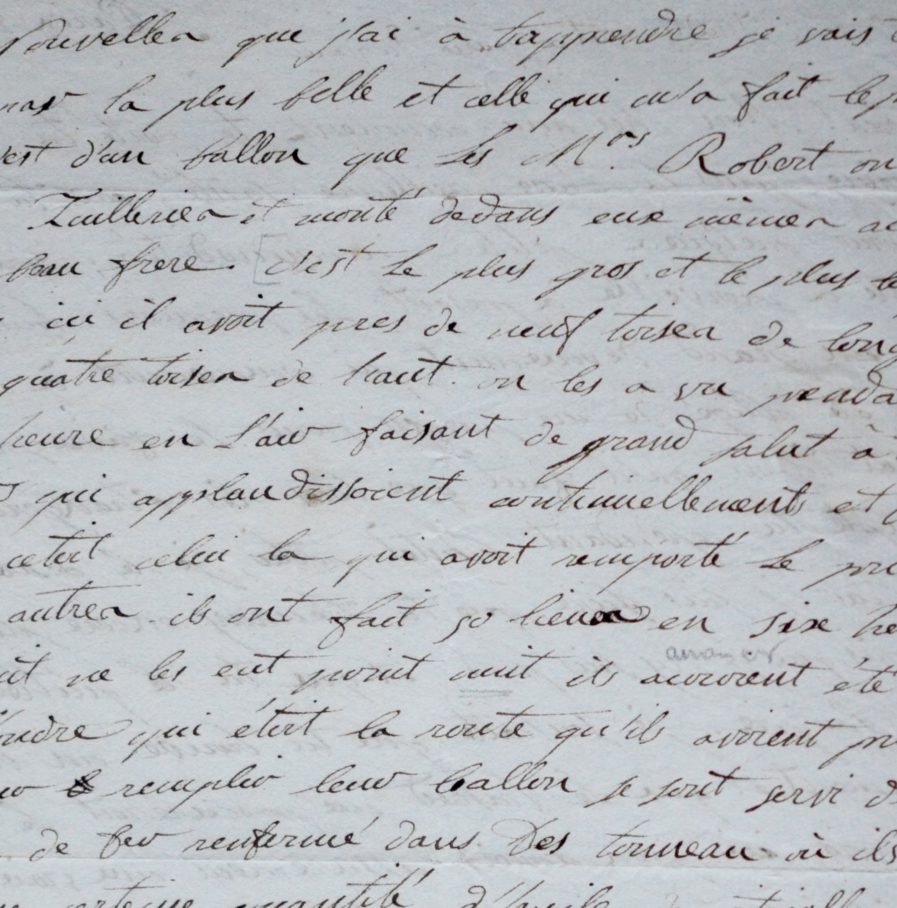 nouvelles que j'ai à t'apprendre je vais
la plus belle et celle qui m'a fait le p
est d'un ballon que les M.rs Robert on
Tuilleries et monté dedans eux mêmes
beau frere. c'est le plus gros et le plus
ici il avoit pres de neuf toises de long
quatre toises de haut. on les a vu penda
heure en l'air faisant de grand salut à
qui applaudissoient continuellements et
cetoit celui la qui avoit remporté le pri
autres. ils ont fait 50 lieues en six he
ne les eut point nuit ils auroient été
qui étoit la route qu'ils avoient pr
remplir leur ballon se sont servi d
de fer renfermé dans Des tonneau où ils
certaine quantité d'huile